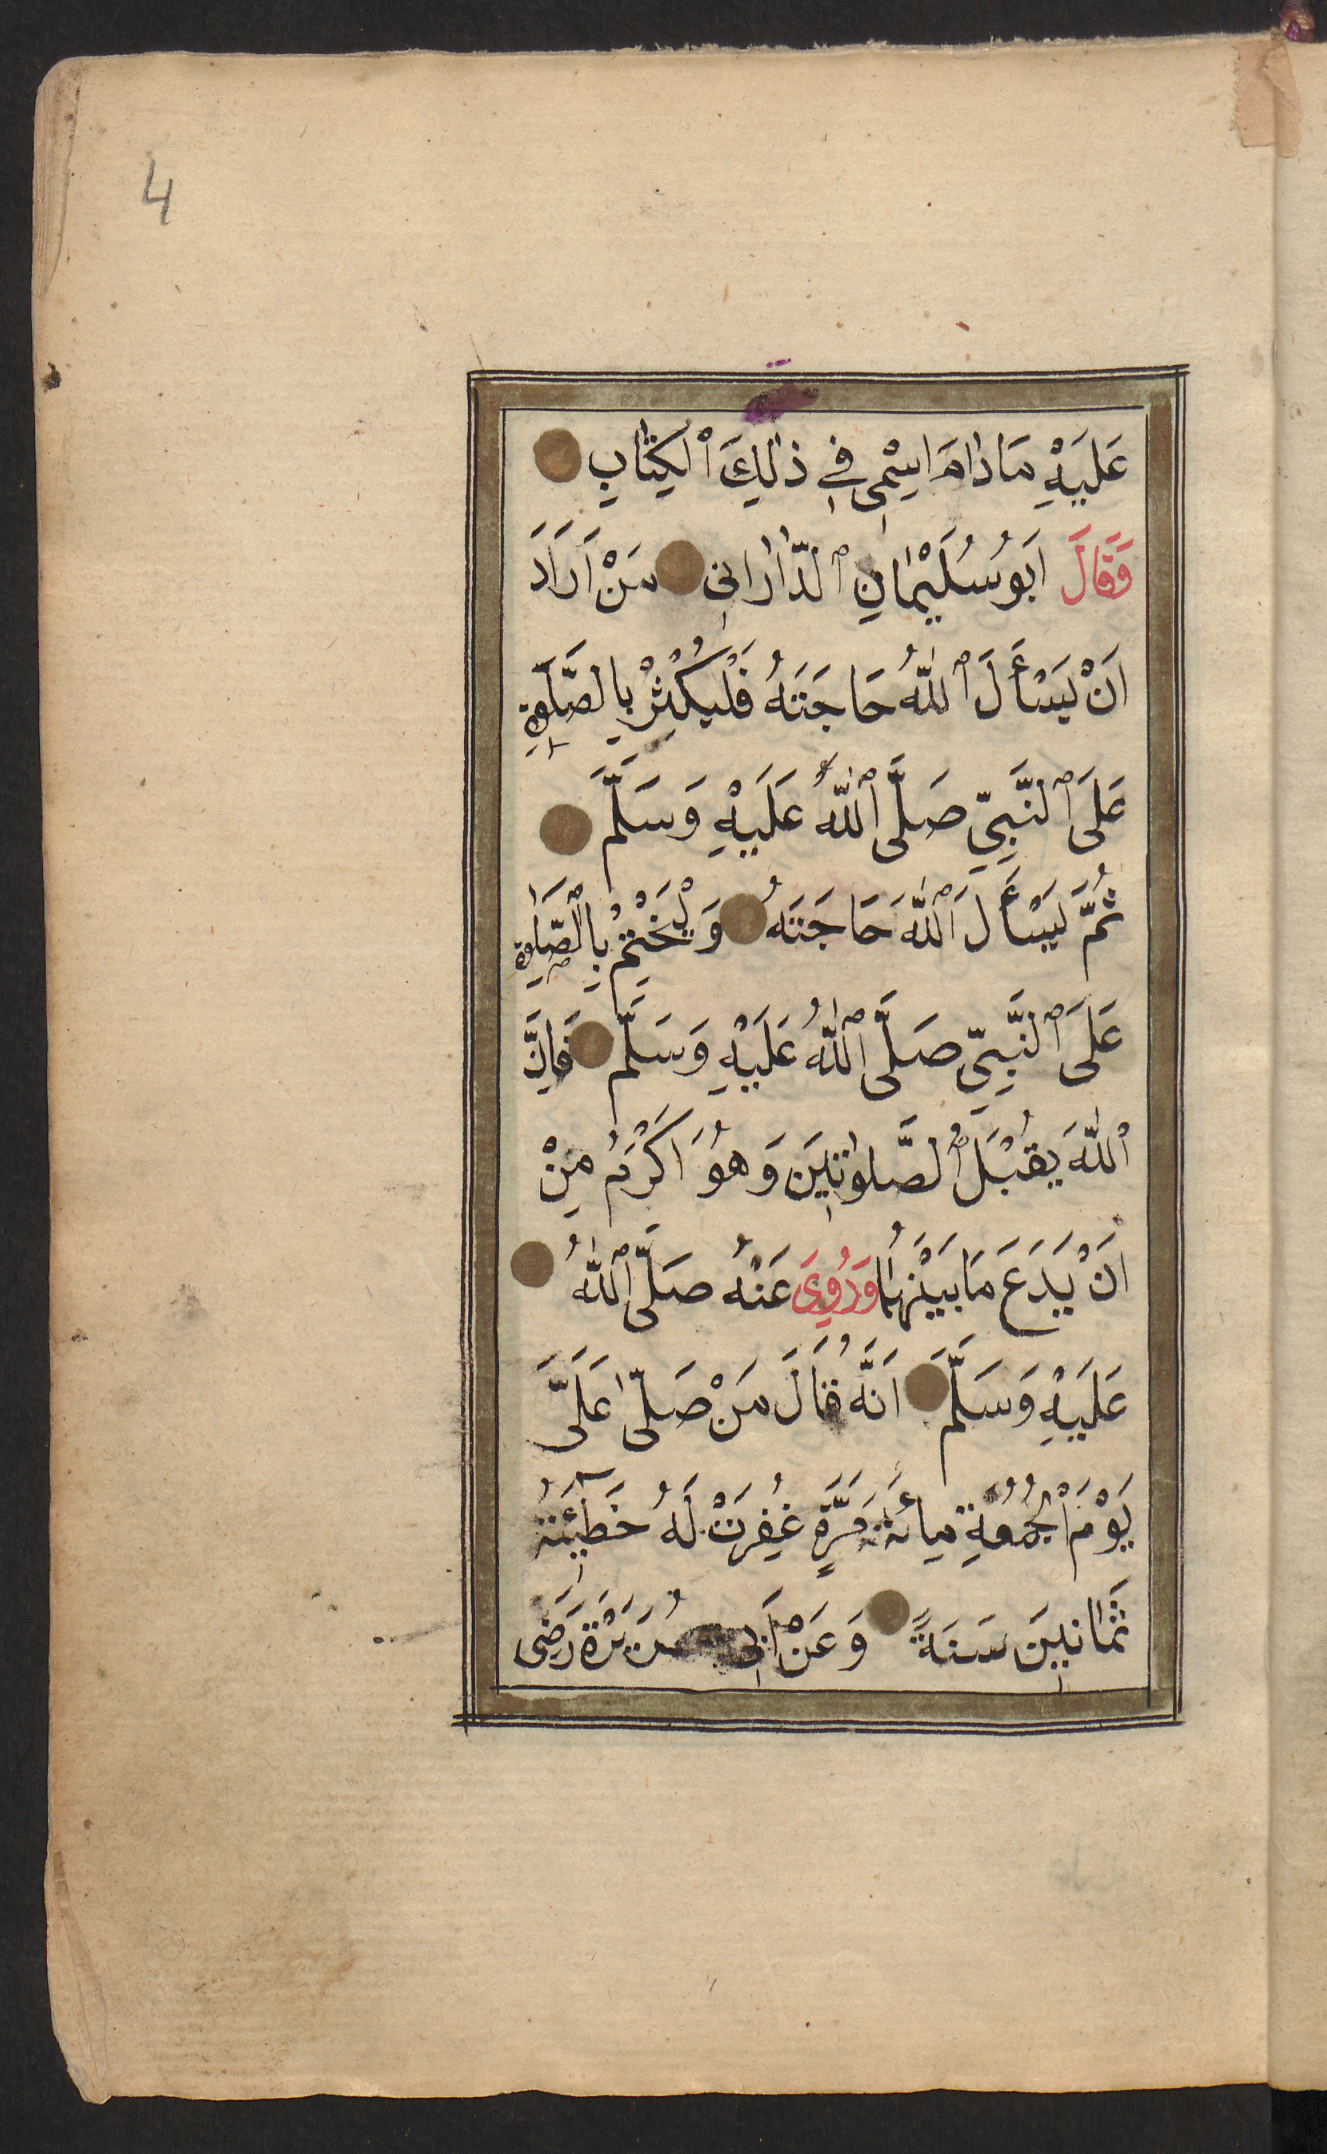 4
عَلَيْهِ مَادَامَ اسْمِى فِى ذٰلِكَ الْكِتَابِ
وَقَالَ اَبُو سُلَيْمَانِ الدَّارَانِى مَنْ اَرَادَ
اَنْ يَسْأَلَ اللّٰهُ حَاجَتَهُ فَلْيُكْثِرْ بِالصَّلَوةِ
عَلَى النَّبِىِّ صَلَّى اللّٰهُ عَلَيْهِ وَسَلَّمَ
ثُمَّ يَسْأَلَ اللّٰهَ حَاجَتَهُ وَلْيَخْتِمْ بِالصَّلٰوةِ
عَلَى النَّبِىِّ صَلَّى اللّٰهُ عَلَيْهِ وَسَلَّمَ فَاِنَّ
اللّٰهَ يَقْبَلُ الصَّلوٰتَيْنَ وَهُوَ اَكْرَمُ مِنْ
اَنْ يَدَعَ مَا بَيْنَهُمَا وَرُوِىَ عَنْهُ صَلَّى اللّٰهُ
عَلَيْهِ وَسَلَّمَ اَنَّهُ قَالَ مَنْ صَلّٰى عَلَىَّ
يَوْمَ الْجُمُعَةِ مِائَةَ مَرَّةٍ غُفِرَتْ لَهُ خَطٓيئَةُ
ثَمَانِينَ سَنَةً وَعَنْ اَبِى هُرَيْرَةَ رَضِىَ